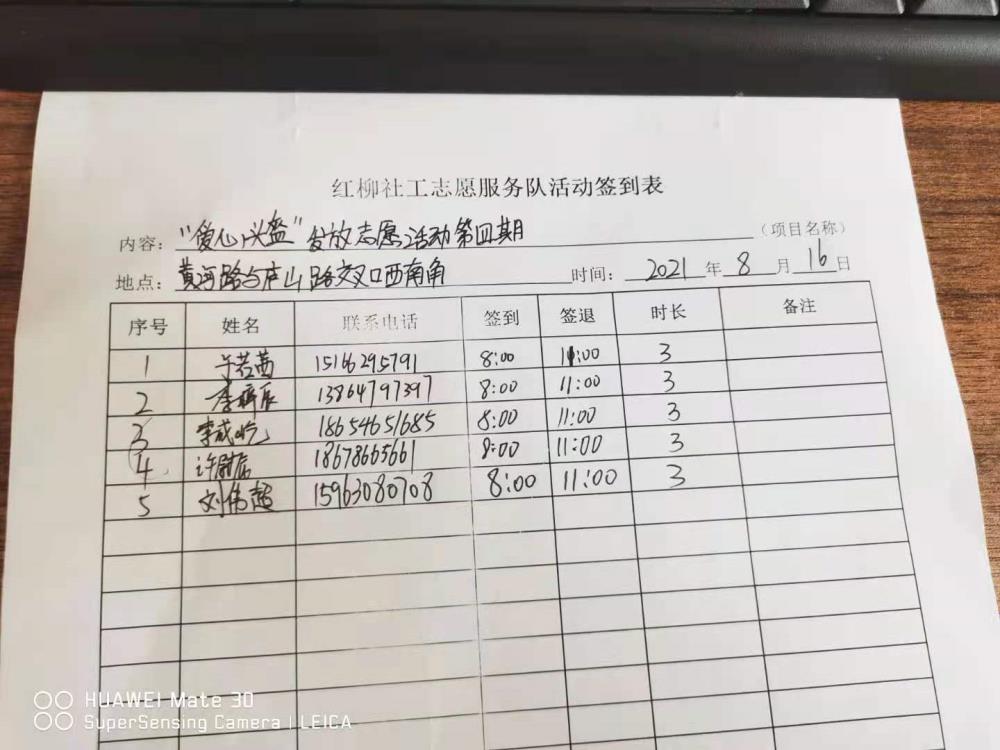 红柳社工志愿服务队活动签到表
内容：“爱心头盔”发放志愿活动第四期（项目名称）
地点：黄河路与庐山路交叉口西南角 时间：2021年8月16日
序号 姓名 联系电话 签到 签退 时长 备注
1 于若茜 15166295791 8:00 11:00 3
2 李 13864797397 8:00 11:00 3
3 李成屹 18654651685 8:00 11:00 3
4 许尉宸 18678665661 8:00 11:00 3
5 刘伟超 15963080708 8:00 11:00 3
HUAWEI Mate 30
SuperSensing Camera | LEICA